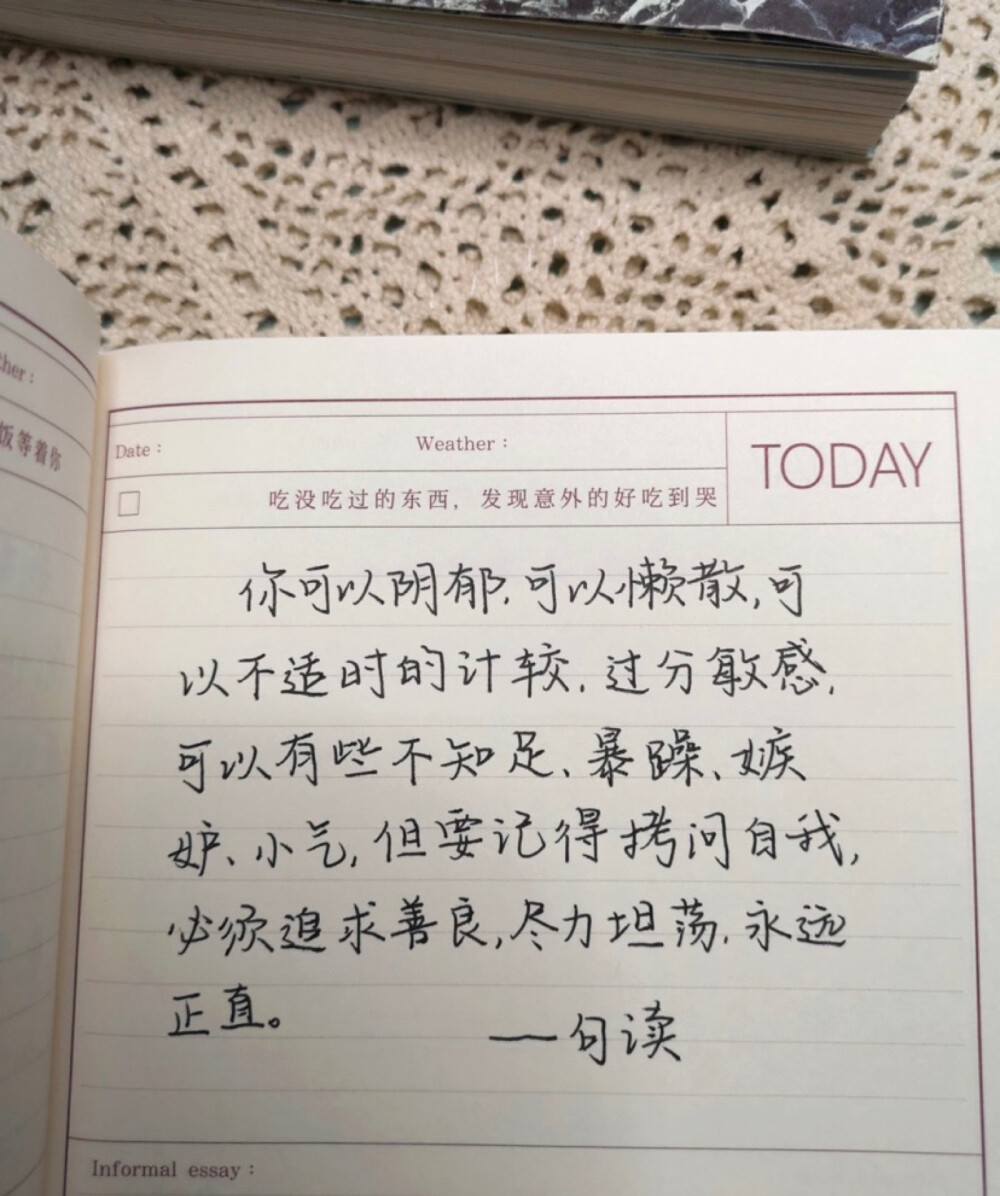 ther：
饭等着你
Date：
Weather：
TODAY
吃没吃过的东西，发现意外的好吃到哭
你可以阴郁，可以懒散，可
以不适时的计较，过分敏感，
可以有些不知足、暴躁、嫉
妒、小气，但要记得拷问自我，
必须追求善良，尽力坦荡，永远
正直。
——句读
Informal essay：